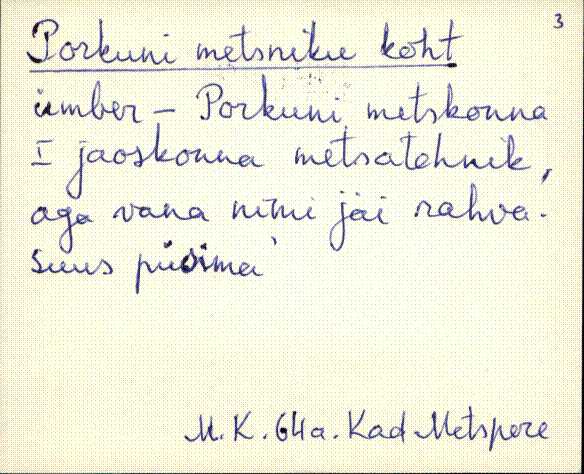 3
Porkuni metsniku koht
ümber – Porkuni metskonna
I jaoskonna metsatehnik,
aga vana nimi jäi rahva-
suus püsima
M.K. 64 a. Kad Metspere